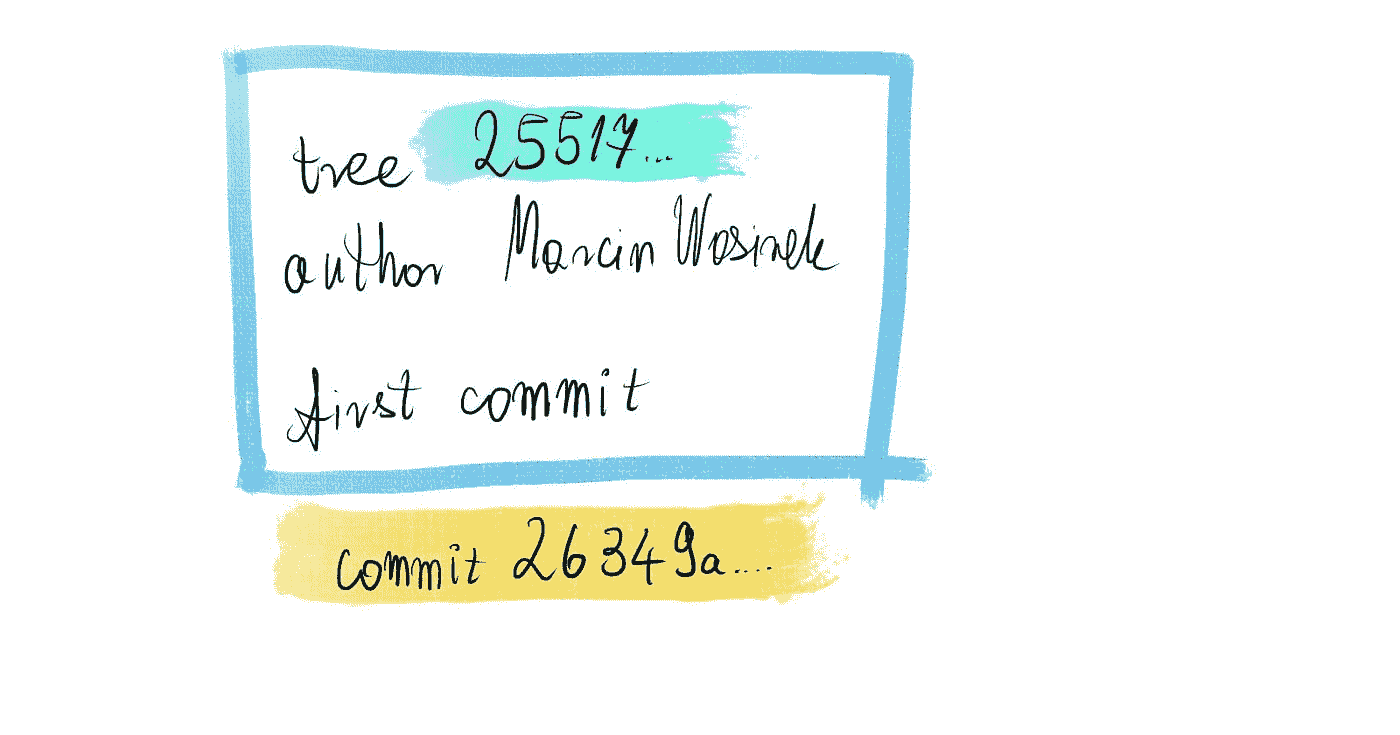 tree 25517...
author Marcin Wosinek
first commit
commit 26349a....